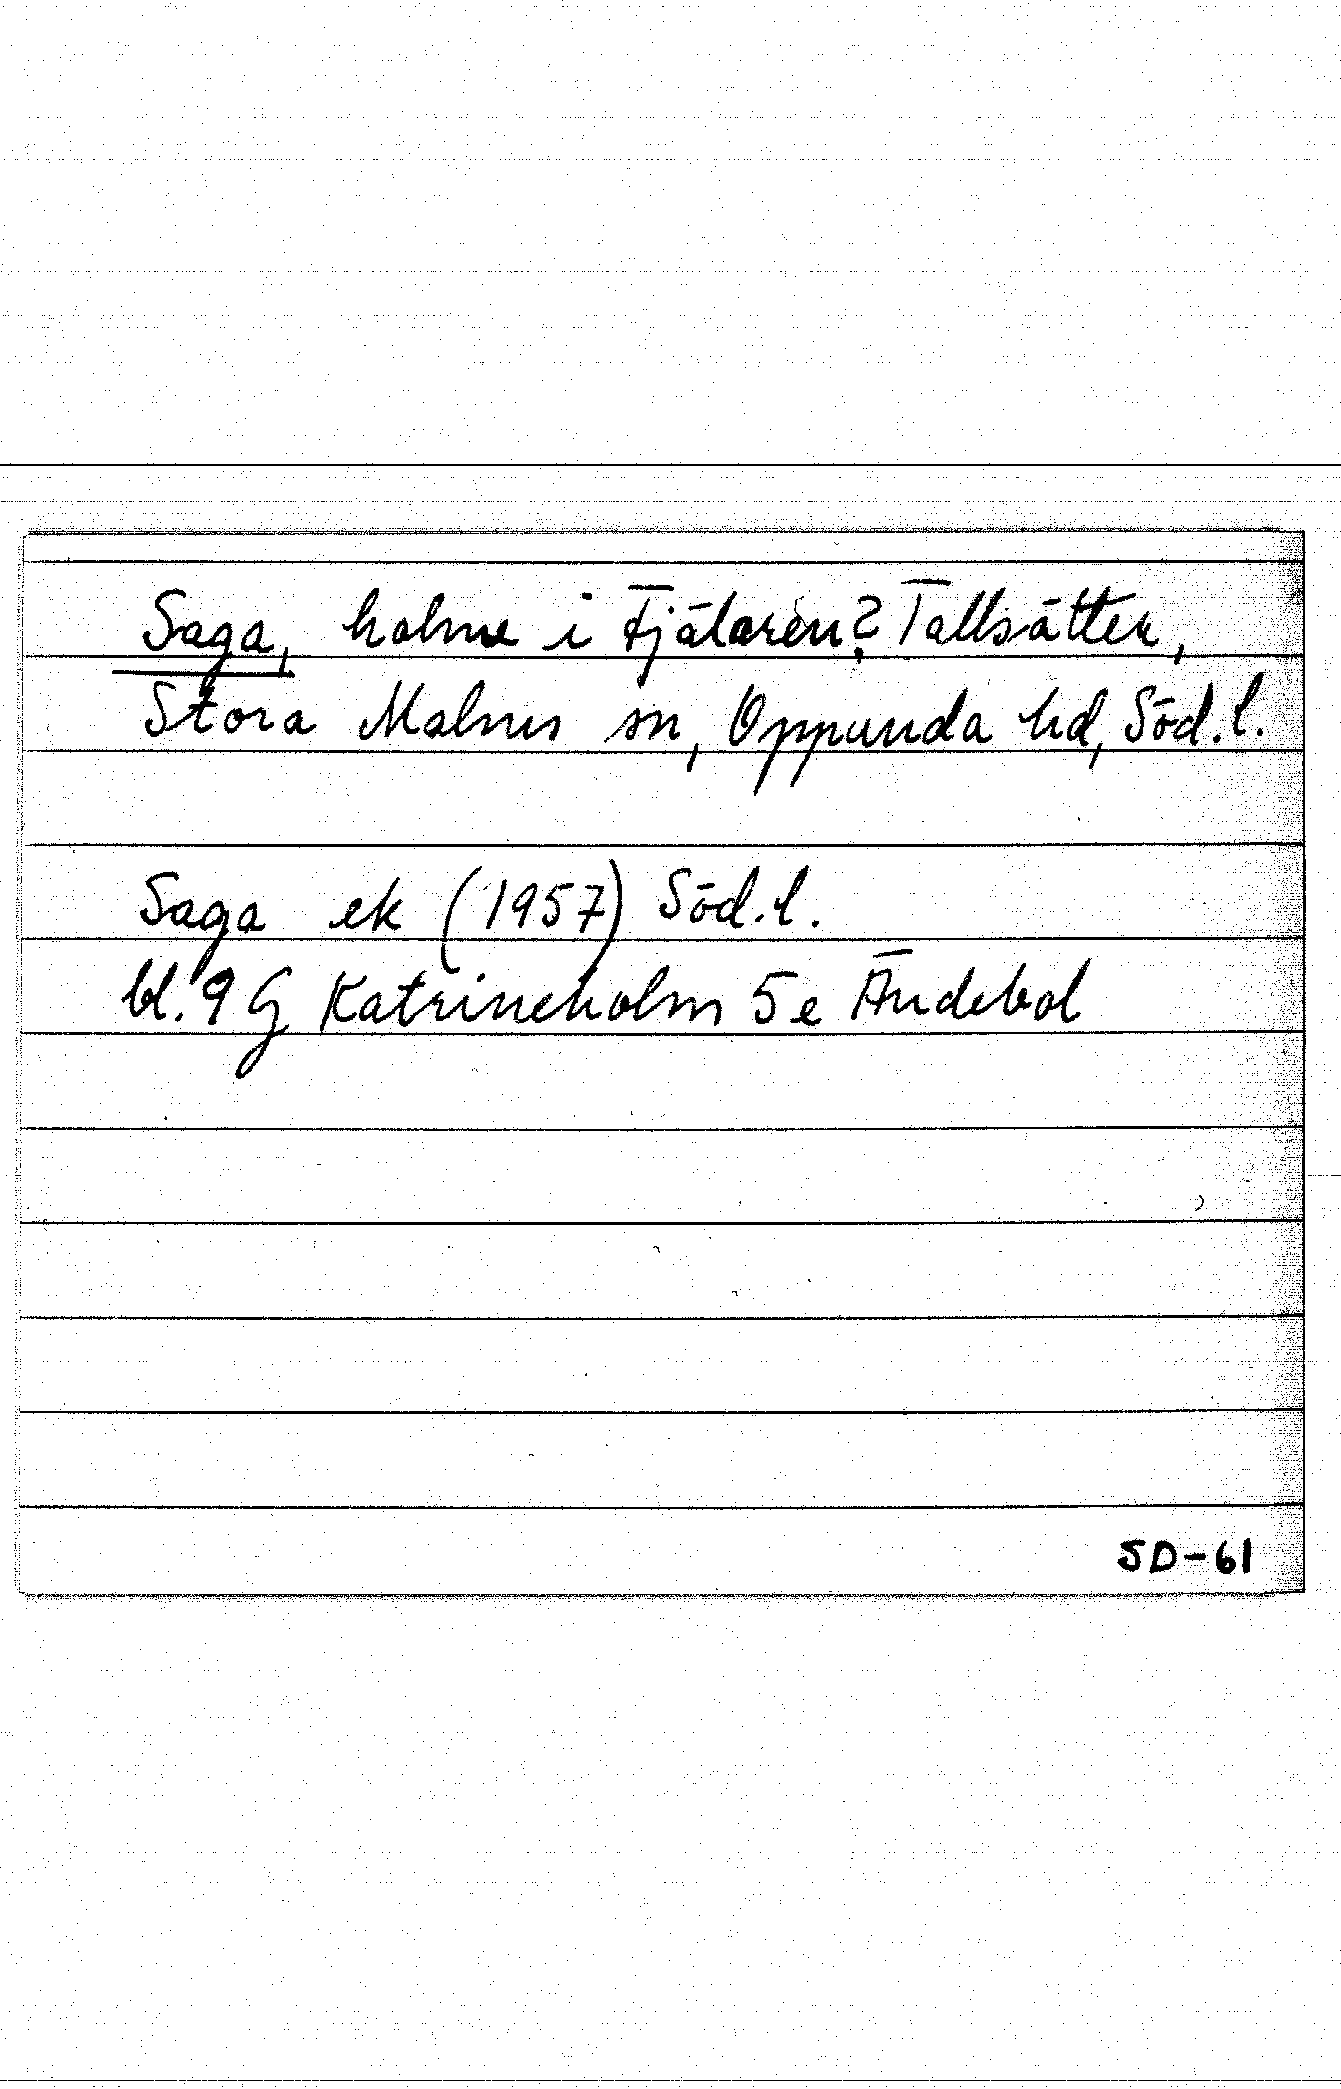 Saga, holme i Fjälaren? Tallsätter,
Stora Malms sn, Oppunda hd, Söd.l.
Saga ek (1957) Söd.l.
bl. 9 G Katrineholm 5 e Ändebol
SD-61